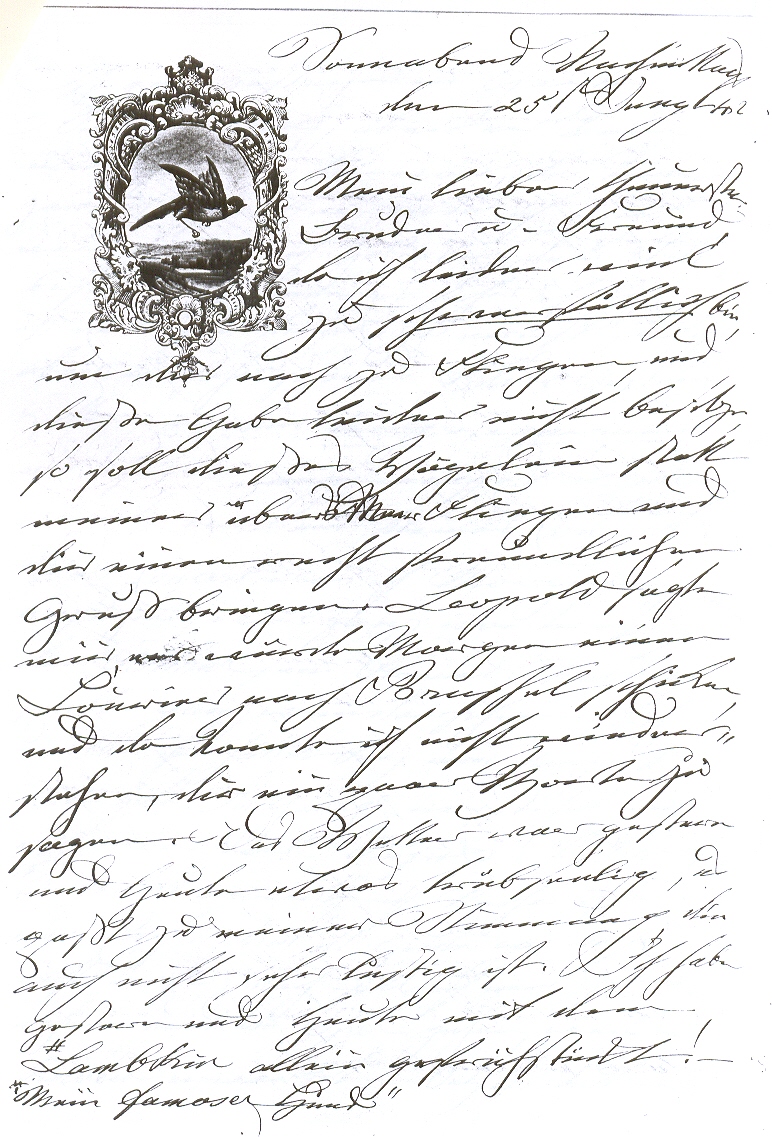 Sonnabend Nachmittag
den 25
Mein lieber theuerster
Bruder u. Freund,
da ich leider viel
zu schwerfällig bin,
um dir nach zu fliegen, und
diese Gabe leider nicht besitze
so soll dieses Vögelein statt
meiner über's Meer fliegen und
dir einen recht freundlichen
Gruß bringen. Leopold sagte
mir, würde Morgen einen
Courier nach Brussel schicken,
und da konnte ich nicht wieder"
stehen, dir ein paar Worte zu
sagen. Das Wetter war gestern
und Heute etwas trübselig, u
paßt zu meiner Stimmung die
auch nicht sehr lustig ist. Ich habe
gestern und Heute mit dem
# Lambkin allein gefrühstückt!
"Mein famoser Hund"